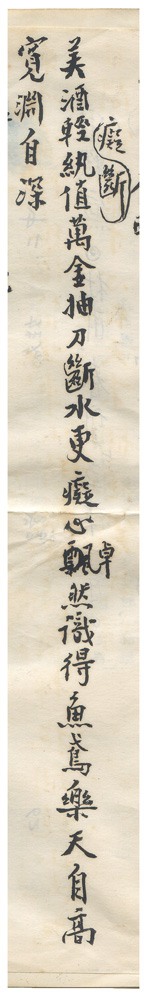 美酒輕紈值萬金抽刀斷水更癡心飄然識得魚鳶樂天自高
寬淵自深
癡斷
卓